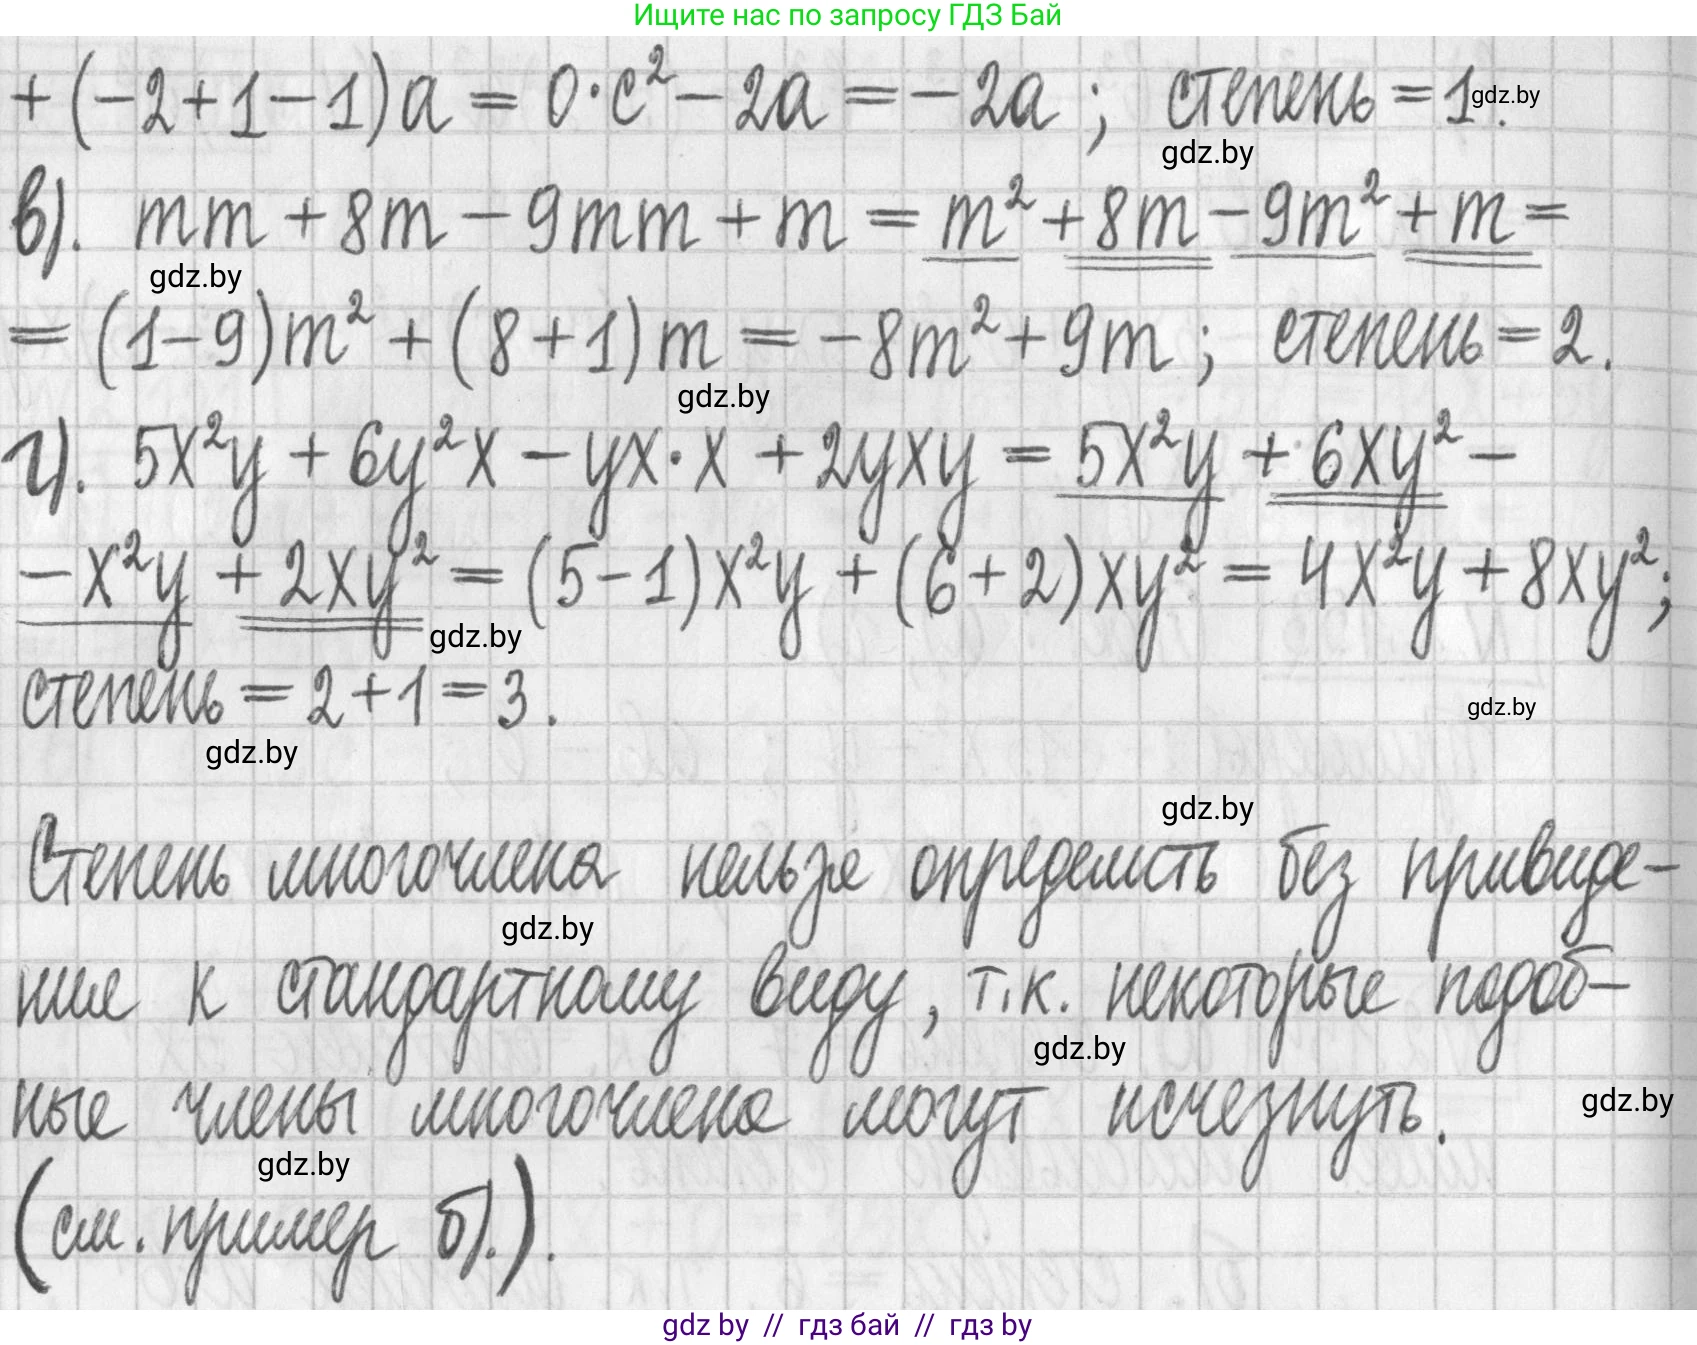 Ищите нас по запросу ГДЗ Бай
+(-2+1-1)a = 0·c² - 2a = -2a ; степень = 1.
gdz.by
gdz.by
в). mm + 8m - 9mm + m = m² + 8m - 9m² + m =
gdz.by
= (1-9)m² + (8+1)m = -8m² + 9m ; степень = 2.
gdz.by
г). 5x²y + 6y²x - yx·x + 2yxy = 5x²y + 6xy² -
- x²y + 2xy² = (5-1)x²y + (6+2)xy² = 4x²y + 8xy²;
gdz.by
степень = 2+1 = 3.
gdz.by
gdz.by
gdz.by
Степень многочлена нельзя определить без привиде-
gdz.by
ния к стандартному виду, т.к. некоторые подоб-
gdz.by
ные члены многочлена могут исчезнуть.
gdz.by
gdz.by
(см. пример б).).
gdz by // гдз бай // гдз by